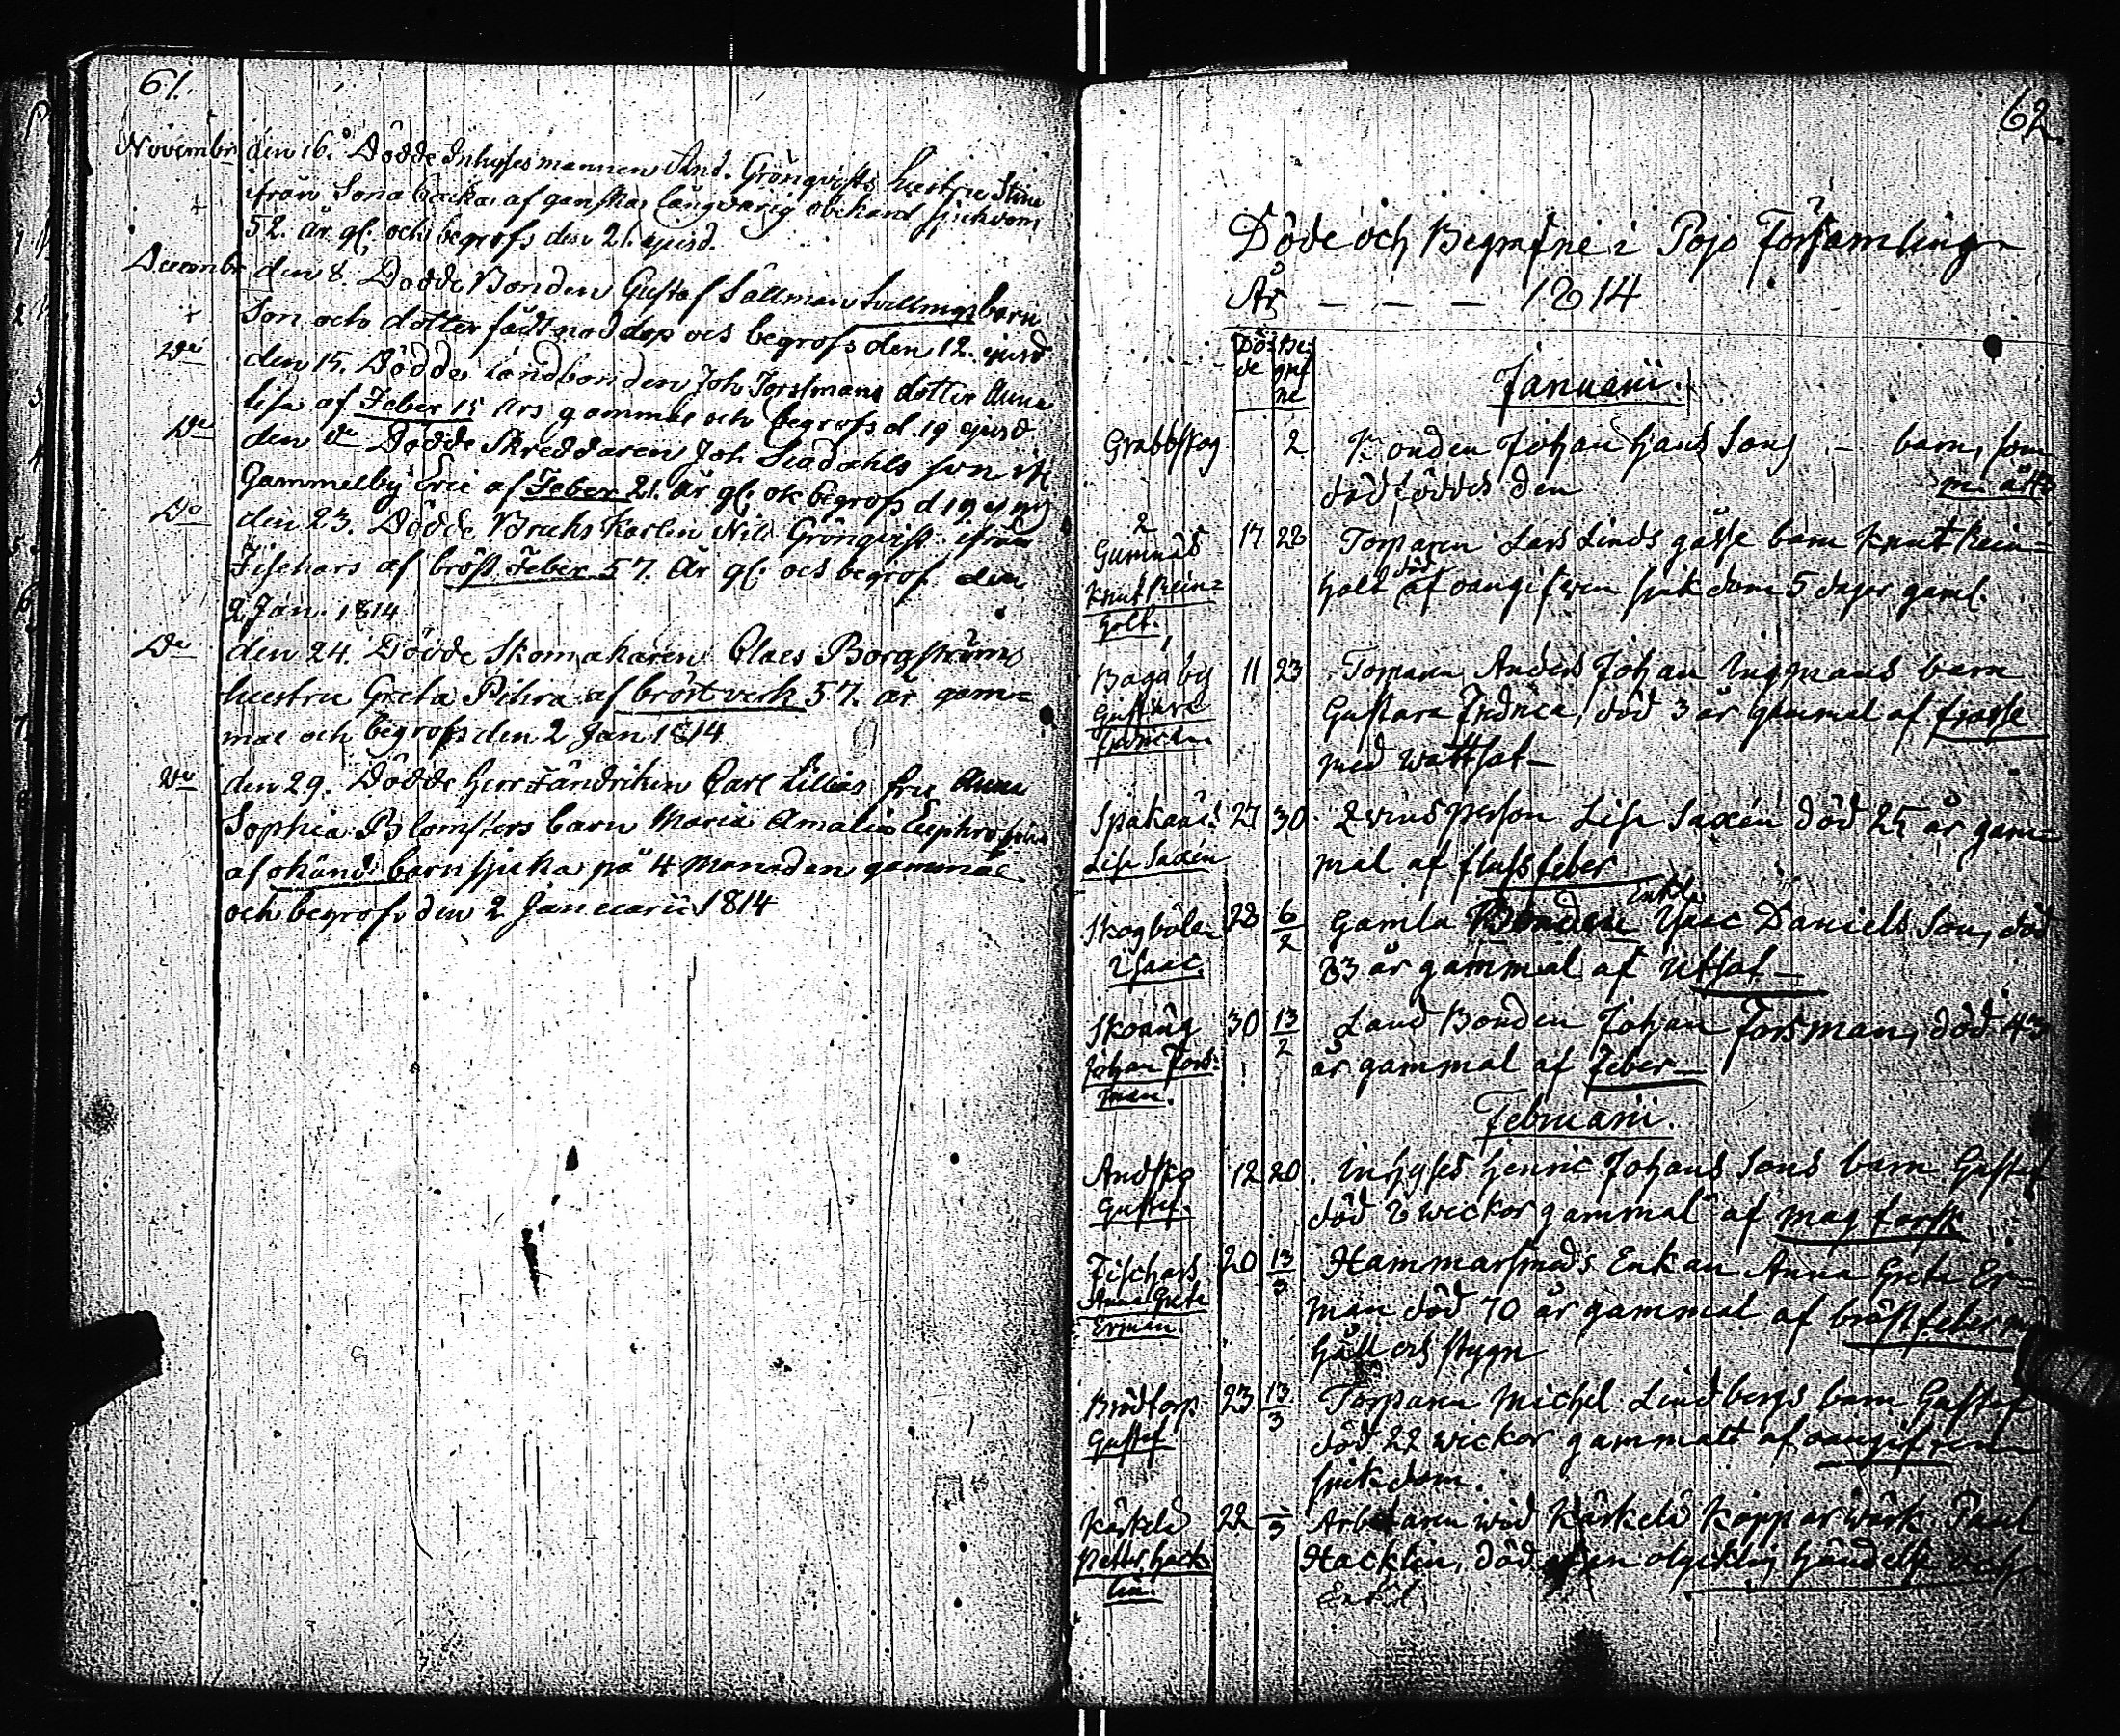 61.
Novembr den 16. Dödde Inhysesmannen And. Grönqvists hustru Stina
ifrån Sonabacka af ganska långvarig obekand sjukdom
52. år gl. och begrofs den 21. ejusd.
Decembr den 8. Dödde Bonden Gustaf Sällmans tvillingsbarn
Son och dotter födt nöddop och begrofs den 12. ejusd
De den 15. Dödde Landbonden Joh Forssmans dotter Anna
Lisa af Feber 15 års gammal och begrofs d. 19 ejusd
De den De Dödde Skreddaren Joh Sundahls son
Gammelby Eric af Feber 21. År gl. ok begrofs d 19 ejusd
De den 23. Dödde Bruks Karlen Nils Grönqvist ifrån
Fischars af bröst Feber 57. År gl. och begrof. den
2 Jan. 1814
De den 24. Dödde Skomakaren Claes Borgströms
hustru Greta Pihra af bröstverk 57. år gam=
mal och begrofs den 2 Jan 1814
De den 29. Dödde Herr Fändriken Carl Lillies fru Anna
Sophia Blomfters barn Maria Amalia Euphrosina
af okänd barnsjuka på 4 Manaden gammal
och begrofs den 2 Januarii 1814
62.
Döde och Begrafne i Pojo Församling
År — — — 1814
Dö=
de
Be=
graf
ne
Januarii.
Grabbskog 2 Bonden Johan Hans Sons — barn, som
dödföddes den
2
Gumnäs 17 23 Torparen Lars Linds gåsse barn Knut Rein=
Knut Rein=
holt. holt död af oangifwen sjukdom 5 dagar gaml.
1
Bagaby 11 23 Torparen Anders Johan Ingmans barn
Gustava
Gustava Fredrica, död 3 år gammal af frosse
med wattsot—
Spakanäs. 27 30. Qvinsperson Lisa Saxén död 25 år gam=
Lisa Saxén mal af flussfeber
Skogböle 28 6/2 Gamla Bonden Enkl. Isaac Daniels Son, död
Isaac. 83 år gammal af Utsot—
Skoaug 30 13/2 Land Bonden Johan Forsman, död 43
Johan Fors=
man. år gammal af Feber—
Februarii.
Andskog 12 20. Inhyses Henric Johans Sons barn Gustaf
Gustaf. död 8 wickor gammal af mag torsk
Fischars 20 13/3 Hammarsmeds Enkan Anna Greta Er=
Anna Greta
Erman man död 70 år gammal af bröstfeber med
håll och stygn
Brödtorp 23 13/3 Torparen Michel Lindbergs barn Gustaf
Gustaf död 22 wickor gammalt af oangifven
sjukdom.
Kärkelä 22 Arbetaren wid Kärkelä Kopparwärk Paul
Petter Hack=
lin. Hacklin, död af en olycklig händelse och